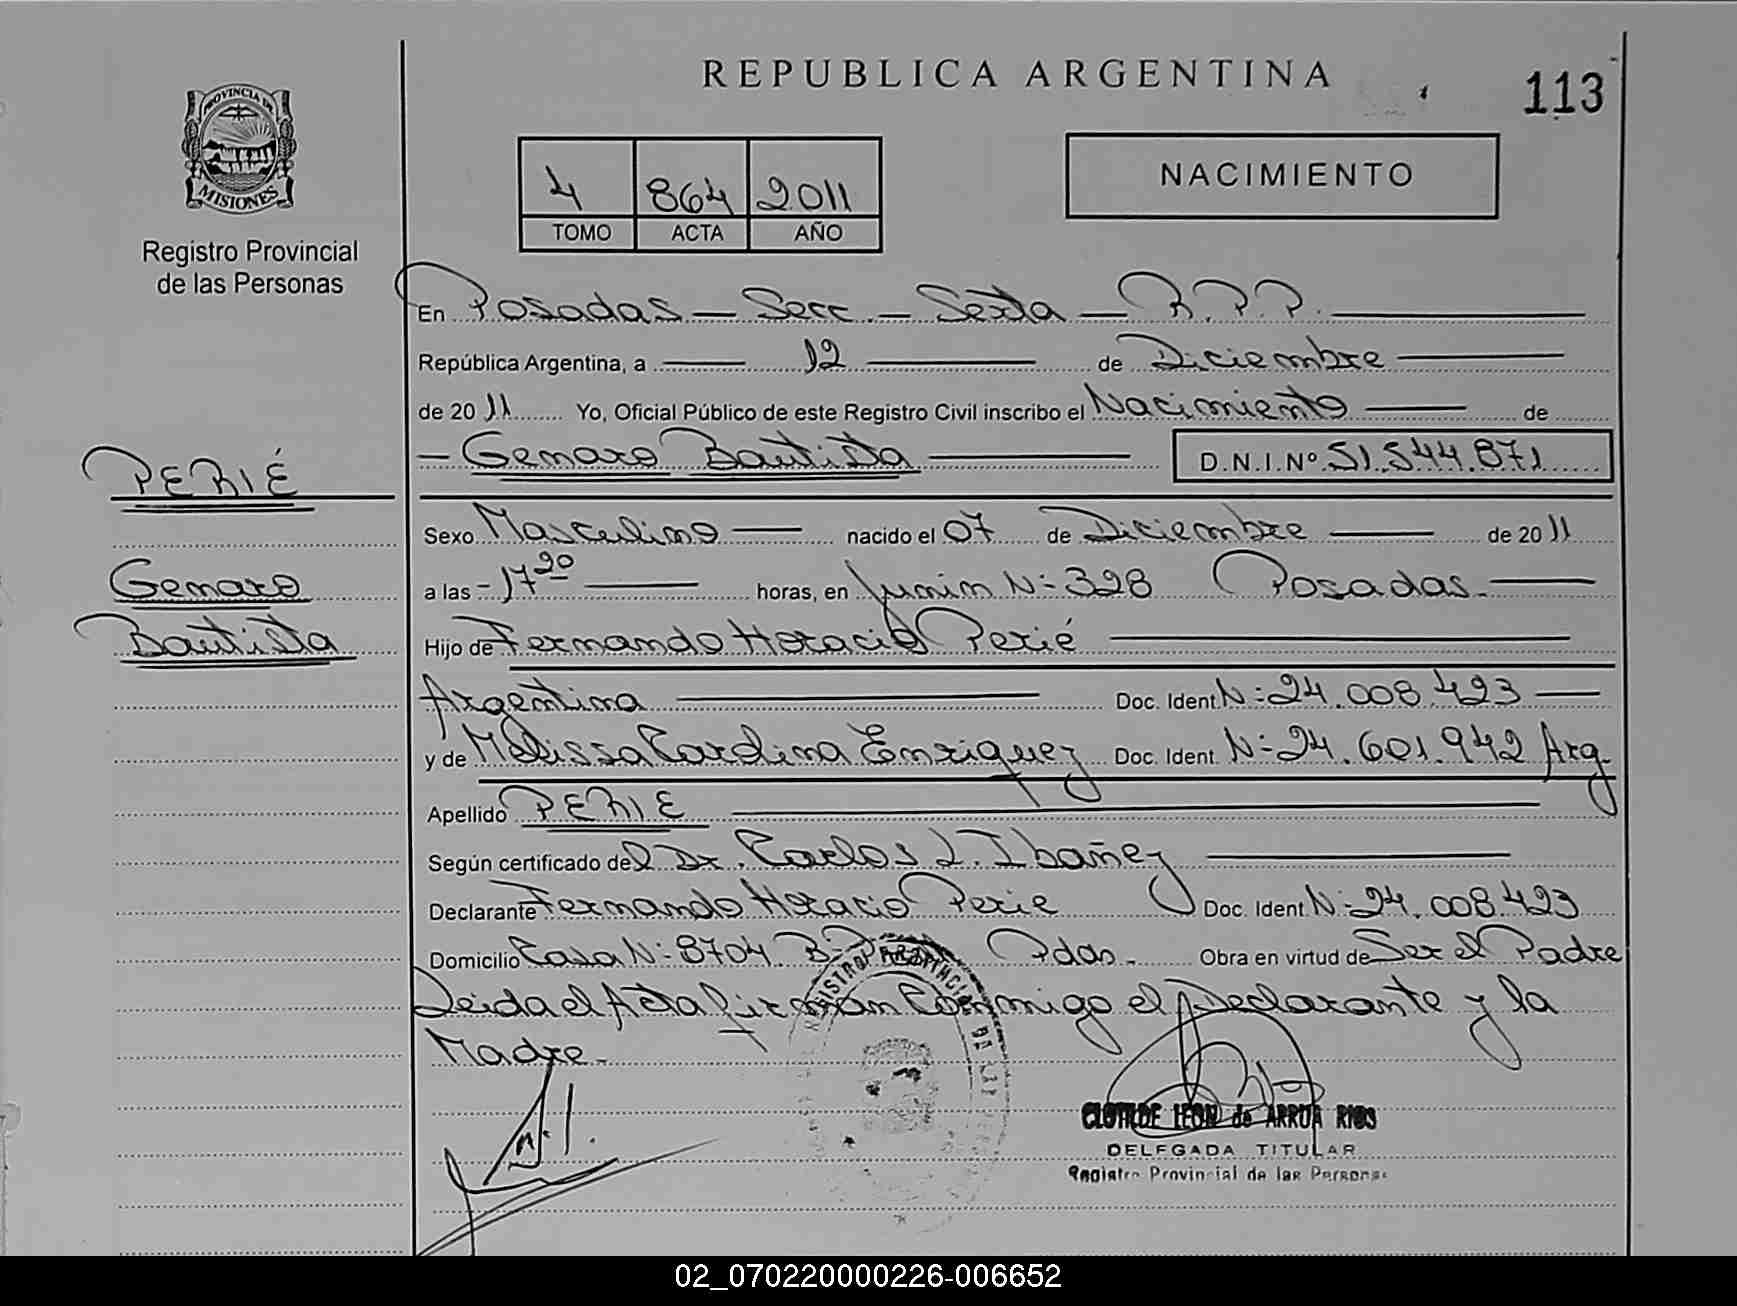 REPUBLICA ARGENTINA
113
PROVINCIA DE
MISIONES
Registro Provincial
de las Personas
4 864 2011
TOMO ACTA AÑO
NACIMIENTO
En Posadas — Secc. — Sexta — R.P.P.
República Argentina, a 12 de Diciembre
de 2011 Yo, Oficial Público de este Registro Civil inscribo el Nacimiento de
— Genaro Bautista — D.N.I.Nº 51.544.871
PERIÉ
Sexo Masculino — nacido el 07 de Diciembre — de 2011
Genaro
a las - 17 20 — horas, en Junin N:- 328 Posadas. —
Bautista
Hijo de Fernando Horacio Perié
Argentina — Doc. Ident N:- 24.008.423 —
y de Melissa Carolina Enriquez Doc. Ident. N:- 24.601.942 Arg.
Apellido PERIE
Según certificado del Dr. Carlos L. Ibañez
Declarante Fernando Horacio Perie Doc. Ident N:- 24.008.423
Domicilio Casa N:- 8704 Pdas. Obra en virtud de Ser el Padre
Leida el Acta firman Conmigo el Declarante y la
Madre.-
CLOTILDE LEON de ARRUA RIOS
DELEGADA TITULAR
Registro Provincial de las Personas
02_070220000226-006652